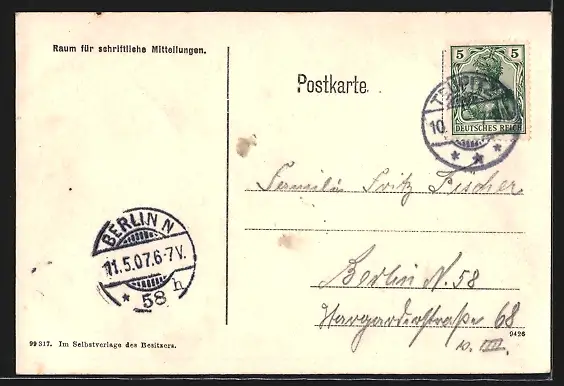 Raum für schriftliche Mitteilungen.
Postkarte.
5 5
DEUTSCHES REICH
10.
Familie Fritz Fischer
BERLIN N
11.5.07.6-7V.
* 58 h
Berlin N. 58
68
99317. Im Selbstverlage des Besitzers.
9426